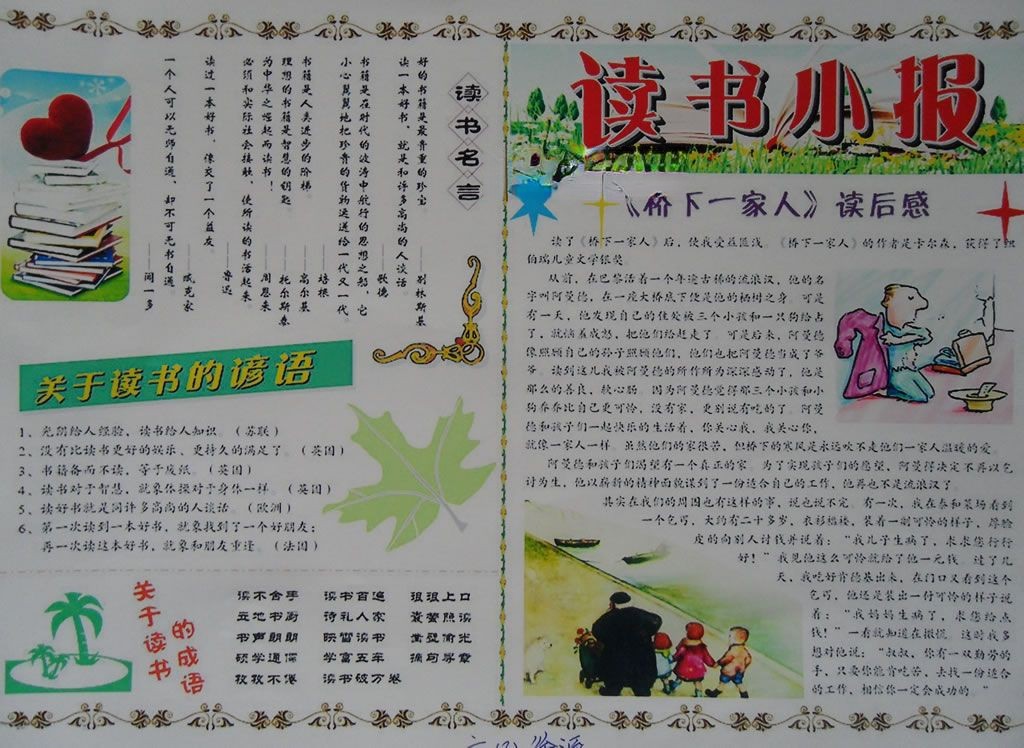 读书小报
《桥下一家人》读后感
读了《桥下一家人》后，使我受益匪浅。《桥下一家人》的作者是卡尔森，获得了纽
伯瑞儿童文学银奖
从前，在巴黎活着一个年逾古稀的流浪汉，他的名
字叫阿曼德，在一座大桥底下便是他的栖树之身。可是
有一天，他发现自己的住处被三个小孩和一只狗给占
了，就恼羞成怒，把他们给赶走了。可是后来，阿曼德
像照顾自己的孙子照顾他们，他们也把阿曼德当成了爷
爷。读到这儿我被阿曼德的所作所为深深感动了，他是
那么的善良，软心肠。因为阿曼德觉得那三个小孩和小
狗乔乔比自己更可怜，没有家，更别说有吃的了。阿曼
德和孩子们一起快乐的生活着，你关心我，我关心你，
就像一家人一样。虽然他们的家很苦，但桥下的寒风是永远吹不走他们一家人温暖的爱。
阿曼德和孩子们渴望有一个真正的家。为了实现孩子们的愿望，阿曼得决定不再以乞
讨为生，他以崭新的精神面貌谋到了一份适合自己的工作，他再也不是流浪汉了。
其实在我们的周围也有这样的事，说也说不完。有一次，我在泰和菜场看到
一个乞丐，大约有二十多岁，衣衫褴褛，装着一副可怜的样子，厚脸
皮的向别人讨钱并说着：“我儿子生病了，求求您行行
好！”我见他这么可怜就给了他一元钱。过了几
天，我吃好肯德基出来，在门口又看到这个
乞丐，他还是装出一付可怜的样子说
着：“我妈妈生病了，求您给点
钱！”一看就知道在撒谎。这时我多
想对他说：“叔叔，你有一双勤劳的
手，只要你能肯吃苦，去找一份适合
的工作，相信你一定会成功的。”
读书名言
好的书籍是最贵重的珍宝
——别林斯基
读一本好书，就是和许多高尚的人谈话。
——歌德
书籍是在时代的波涛中航行的思想之船，它
小心翼翼地把珍贵的货物运送给一代又一代。
——培根
书籍是人类进步的阶梯
——高尔基
理想的书籍是智慧的钥匙
——托尔斯泰
为中华之崛起而读书！
——周恩来
必须和实际社会接触，使所读的书活起来
——鲁迅
读过一本好书，像交了一个益友。
——臧克家
一个人可以无师自通，却不可无书自通。
——闻一多
关于读书的谚语
1、光阴给人经验，读书给人知识。（苏联）
2、没有比读书更好的娱乐、更持久的满足了。（英国）
3、书籍备而不读，等于废纸。（英国）
4、读书对于智慧，就象体操对于身体一样。（英国）
5、读好书就是同许多高尚的人谈话。（欧洲）
6、第一次读到一本好书，就象找到了一个好朋友；
再一次读这本好书，就象和朋友重逢。（法国）
关于读书
的成语
读不舍手 读书百遍 琅琅上口
立地书厨 诗礼人家 囊萤照读
书声朗朗 映雪读书 凿壁偷光
硕学通儒 学富五车 摘句寻章
孜孜不倦 读书破万卷